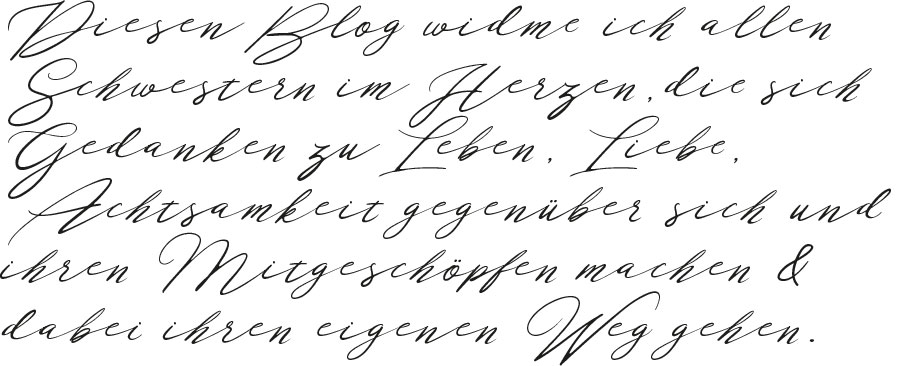 Diesen Blog widme ich allen
Schwestern im Herzen, die sich
Gedanken zu Leben, Liebe,
Achtsamkeit gegenüber sich und
ihren Mitgeschöpfen machen &
dabei ihren eigenen Weg gehen.